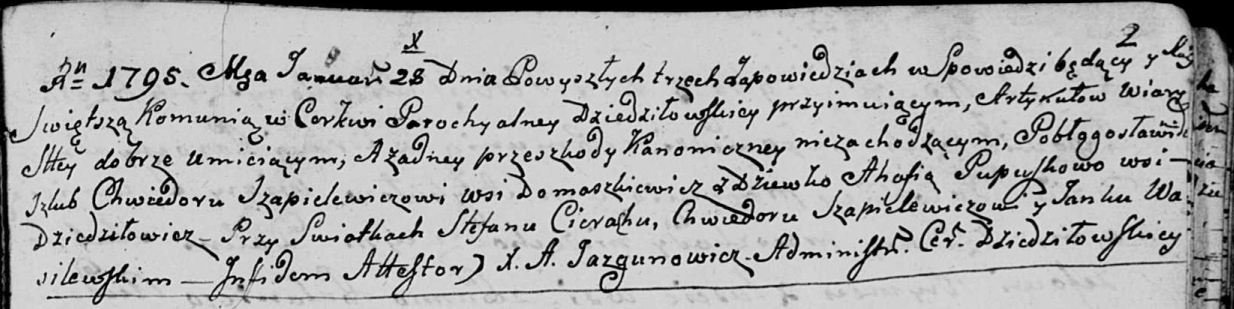 X 2
Ann 1795. Mga Januari 28 Dnia Powyszłych trzech Zapowiedziach w Spowiedzi będący y Nay
Swiętszą Komunią w Cerkwi Parochyalney Dziedziłowskiey przyimuiącym, Artykułow Wiary
Stey dobrze umieiącym, A żadney przeszkody Kanoniczney niezachodzącym, Pobłogosławił
Szlub Chwiedoru Szapielewiczowi wsi Domaszkiewicz z Dziewko Ahafią Pupuszkowo wsi —
Dziedziłowicz — Przy Swiatkach Stefanu Cierachu, Chwiedoru Szapielewiczowi y Janku Wa-
silewskim — Infidem Attestor) X. A. Jazgunowicz. Administr. Cer. Dziedziłowskiey